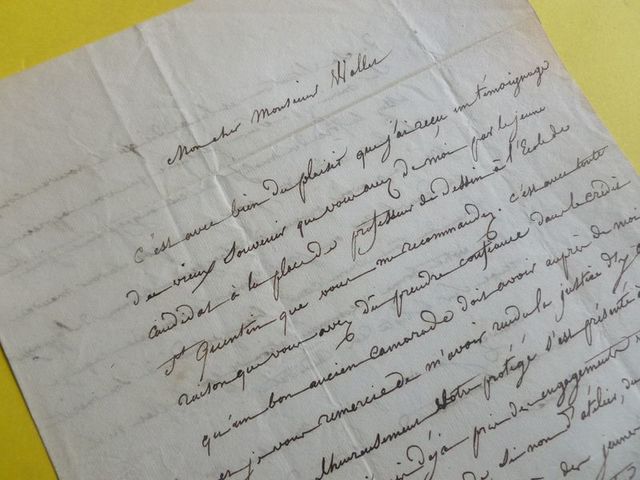 Mon cher Monsieur Hallet
C'est avec bien du plaisir que j'ai reçu un témoignage
de vieux souvenir que vous avez de moi par le jeune
candidat à la place de professeur de Dessin à l'Ecole de
St Quentin que vous me recommandez. C'est avec toute
raison que vous avez du prendre confiance dans le crédit
qu'un bon ancien camarade doit avoir auprès de moi
et je vous remercie de m'avoir rendu la justice d'y
malheureusement votre protégé s'est présenté
déjà pris des engagements
de si non d'atelier, du
des jeunes